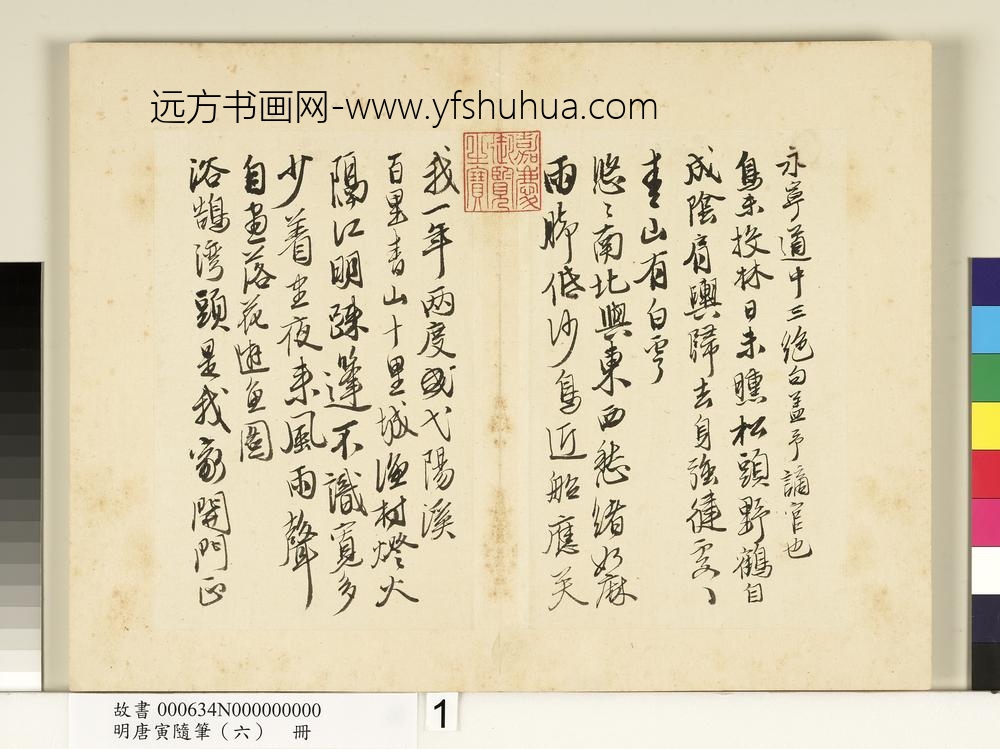 远方书画网-www.yfshuhua.com
永寧道中三絕句蓋予謫官也
鳥未投林日未曛松頭野鶴自
成陰肩輿歸去身強健處〻
青山有白雲
悠〻南北與東西愁緒如麻
雨脚低沙鳥近船應笑
嘉慶御覽之寶
我一年兩度弋陽溪
百里青山十里城漁村燈火
隔江明疎篷不識寬多
少着盡夜來風雨聲
自畫落花遊魚圖
浴鵠灣頭是我家開門正
故書 000634N000000000
明唐寅隨筆（六） 冊
1